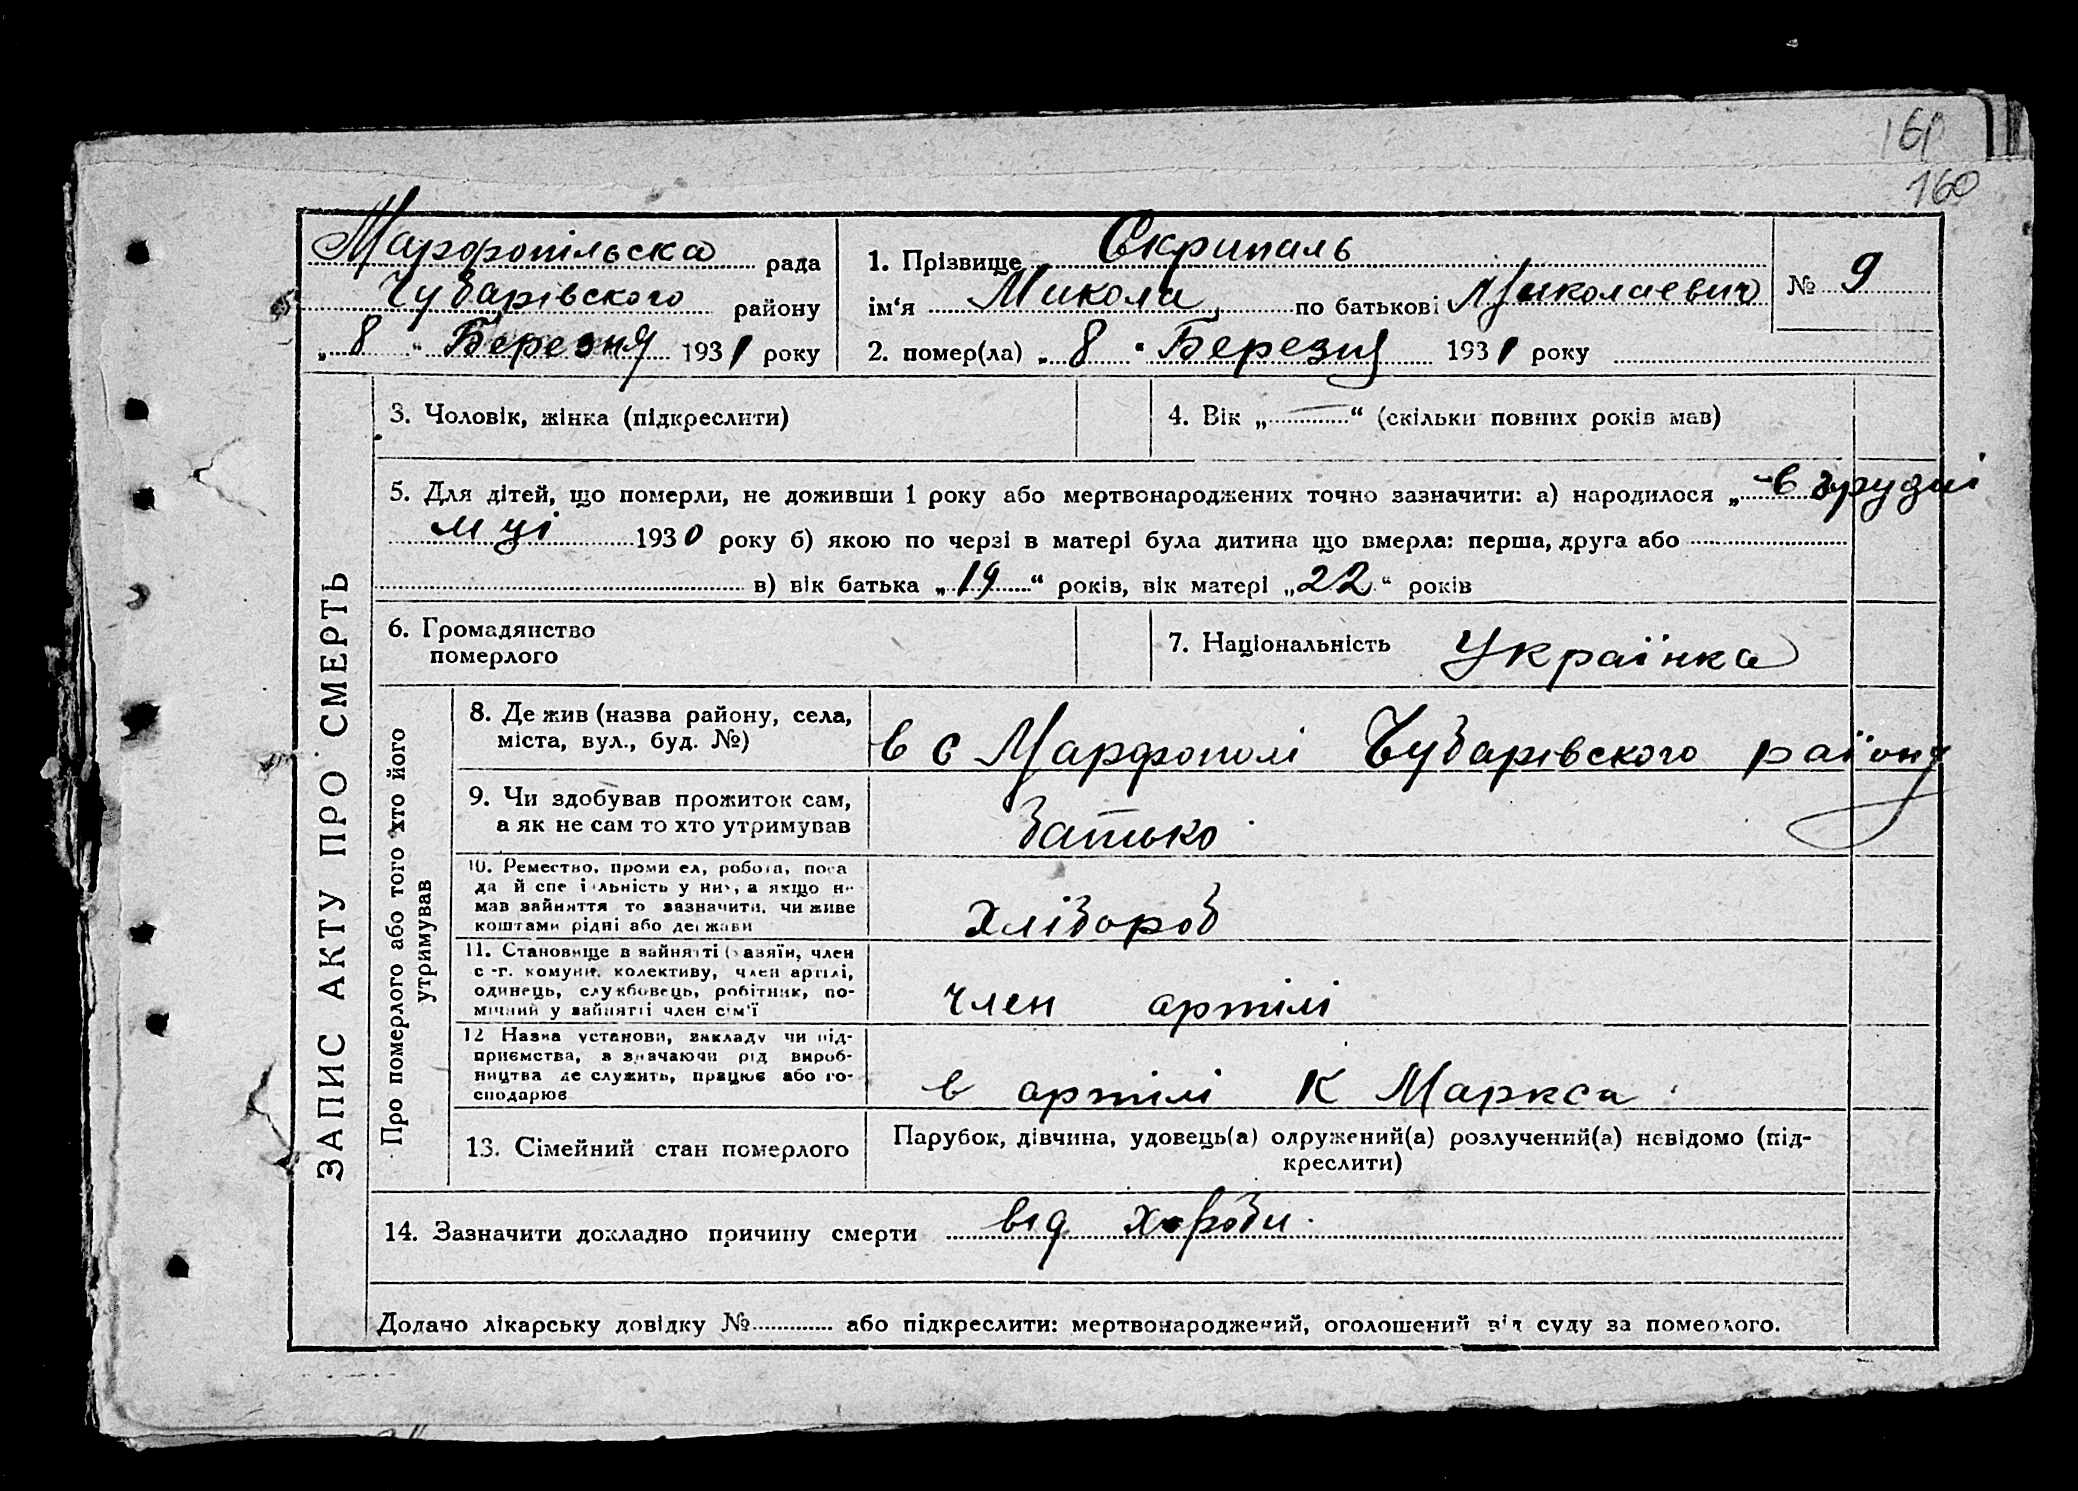 160
Марфопільска рада
Чубарівського району
„ 8 “ Березня 1931 року
1. Прізвище Скрипаль
ім‘я Микола по батькові Миколаевич
2. помер(ла) „ 8 “ Березня 1931 року
№ 9
ЗАПИС АКТУ ПРО СМЕРТЬ
3. Чоловік, жінка (підкреслити)
4. Вік „ — “ (скільки повних років мав)
5. Для дітей, що померли, не доживши 1 року або мертвонароджених точно зазначити: а) народилося „ в грудні
м ці 1930 року б) якою по черзі в матері була дитина що вмерла: перша, друга або
в) вік батька „ 19 “ років, вік матері „ 22 “ років
6. Громадянство
померлого
7. Національність Українка
Про померлого або того хто його
утримував
8. Де жив (назва району, села,
міста, вул., буд. №)
в с Марфополі Чубарівского району
9. Чи здобував прожиток сам,
а як не сам то хто утримував
батько
10. Ремество, проми ел, робота, поса
да й спе і льність у ни, а якщо н
мав зайняття то зазначити, чи живе
коштами рідні або держави
Хлібороб
11. Становище в зайнятті (хазяїн, член
с -г. комуни, колективу, член артілі,
одинець, службовець, робітник, по-
мічний у зайнятті член сім'ї
член артілі
12 Назва установи, закладу чи під-
приємства, з значаючи рід вироб-
ництва де служить, працює або го-
сподарює
в артілі К Маркса
13. Сімейний стан померлого
Парубок, дівчина, удовець(а) одружений(а) розлучений(а) невідомо (під-
креслити)
14. Зазначити докладно причину смерти від хороби.
Додано лікарську довідку № або підкреслити: мертвонароджений, оголошений від суду за померлого.